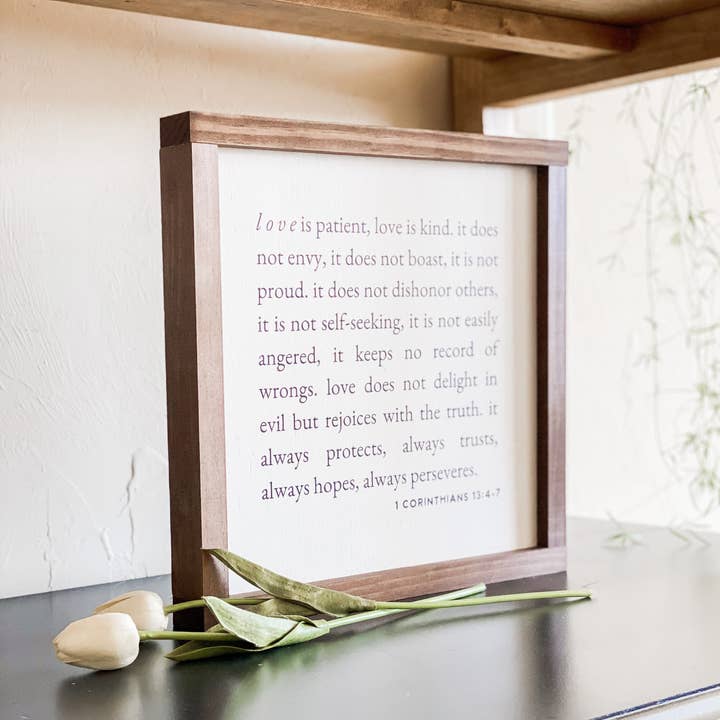 love is patient, love is kind. it does
not envy, it does not boast, it is not
proud. it does not dishonor others,
it is not self-seeking, it is not easily
angered, it keeps no record of
wrongs. love does not delight in
evil but rejoices with the truth. it
always protects, always trusts,
always hopes, always perseveres.
1 CORINTHIANS 13:4-7